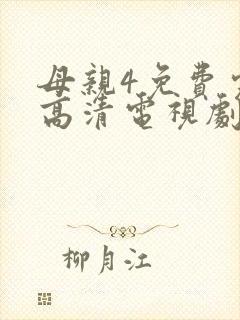 母親4免費
高清電視劇
柳月江